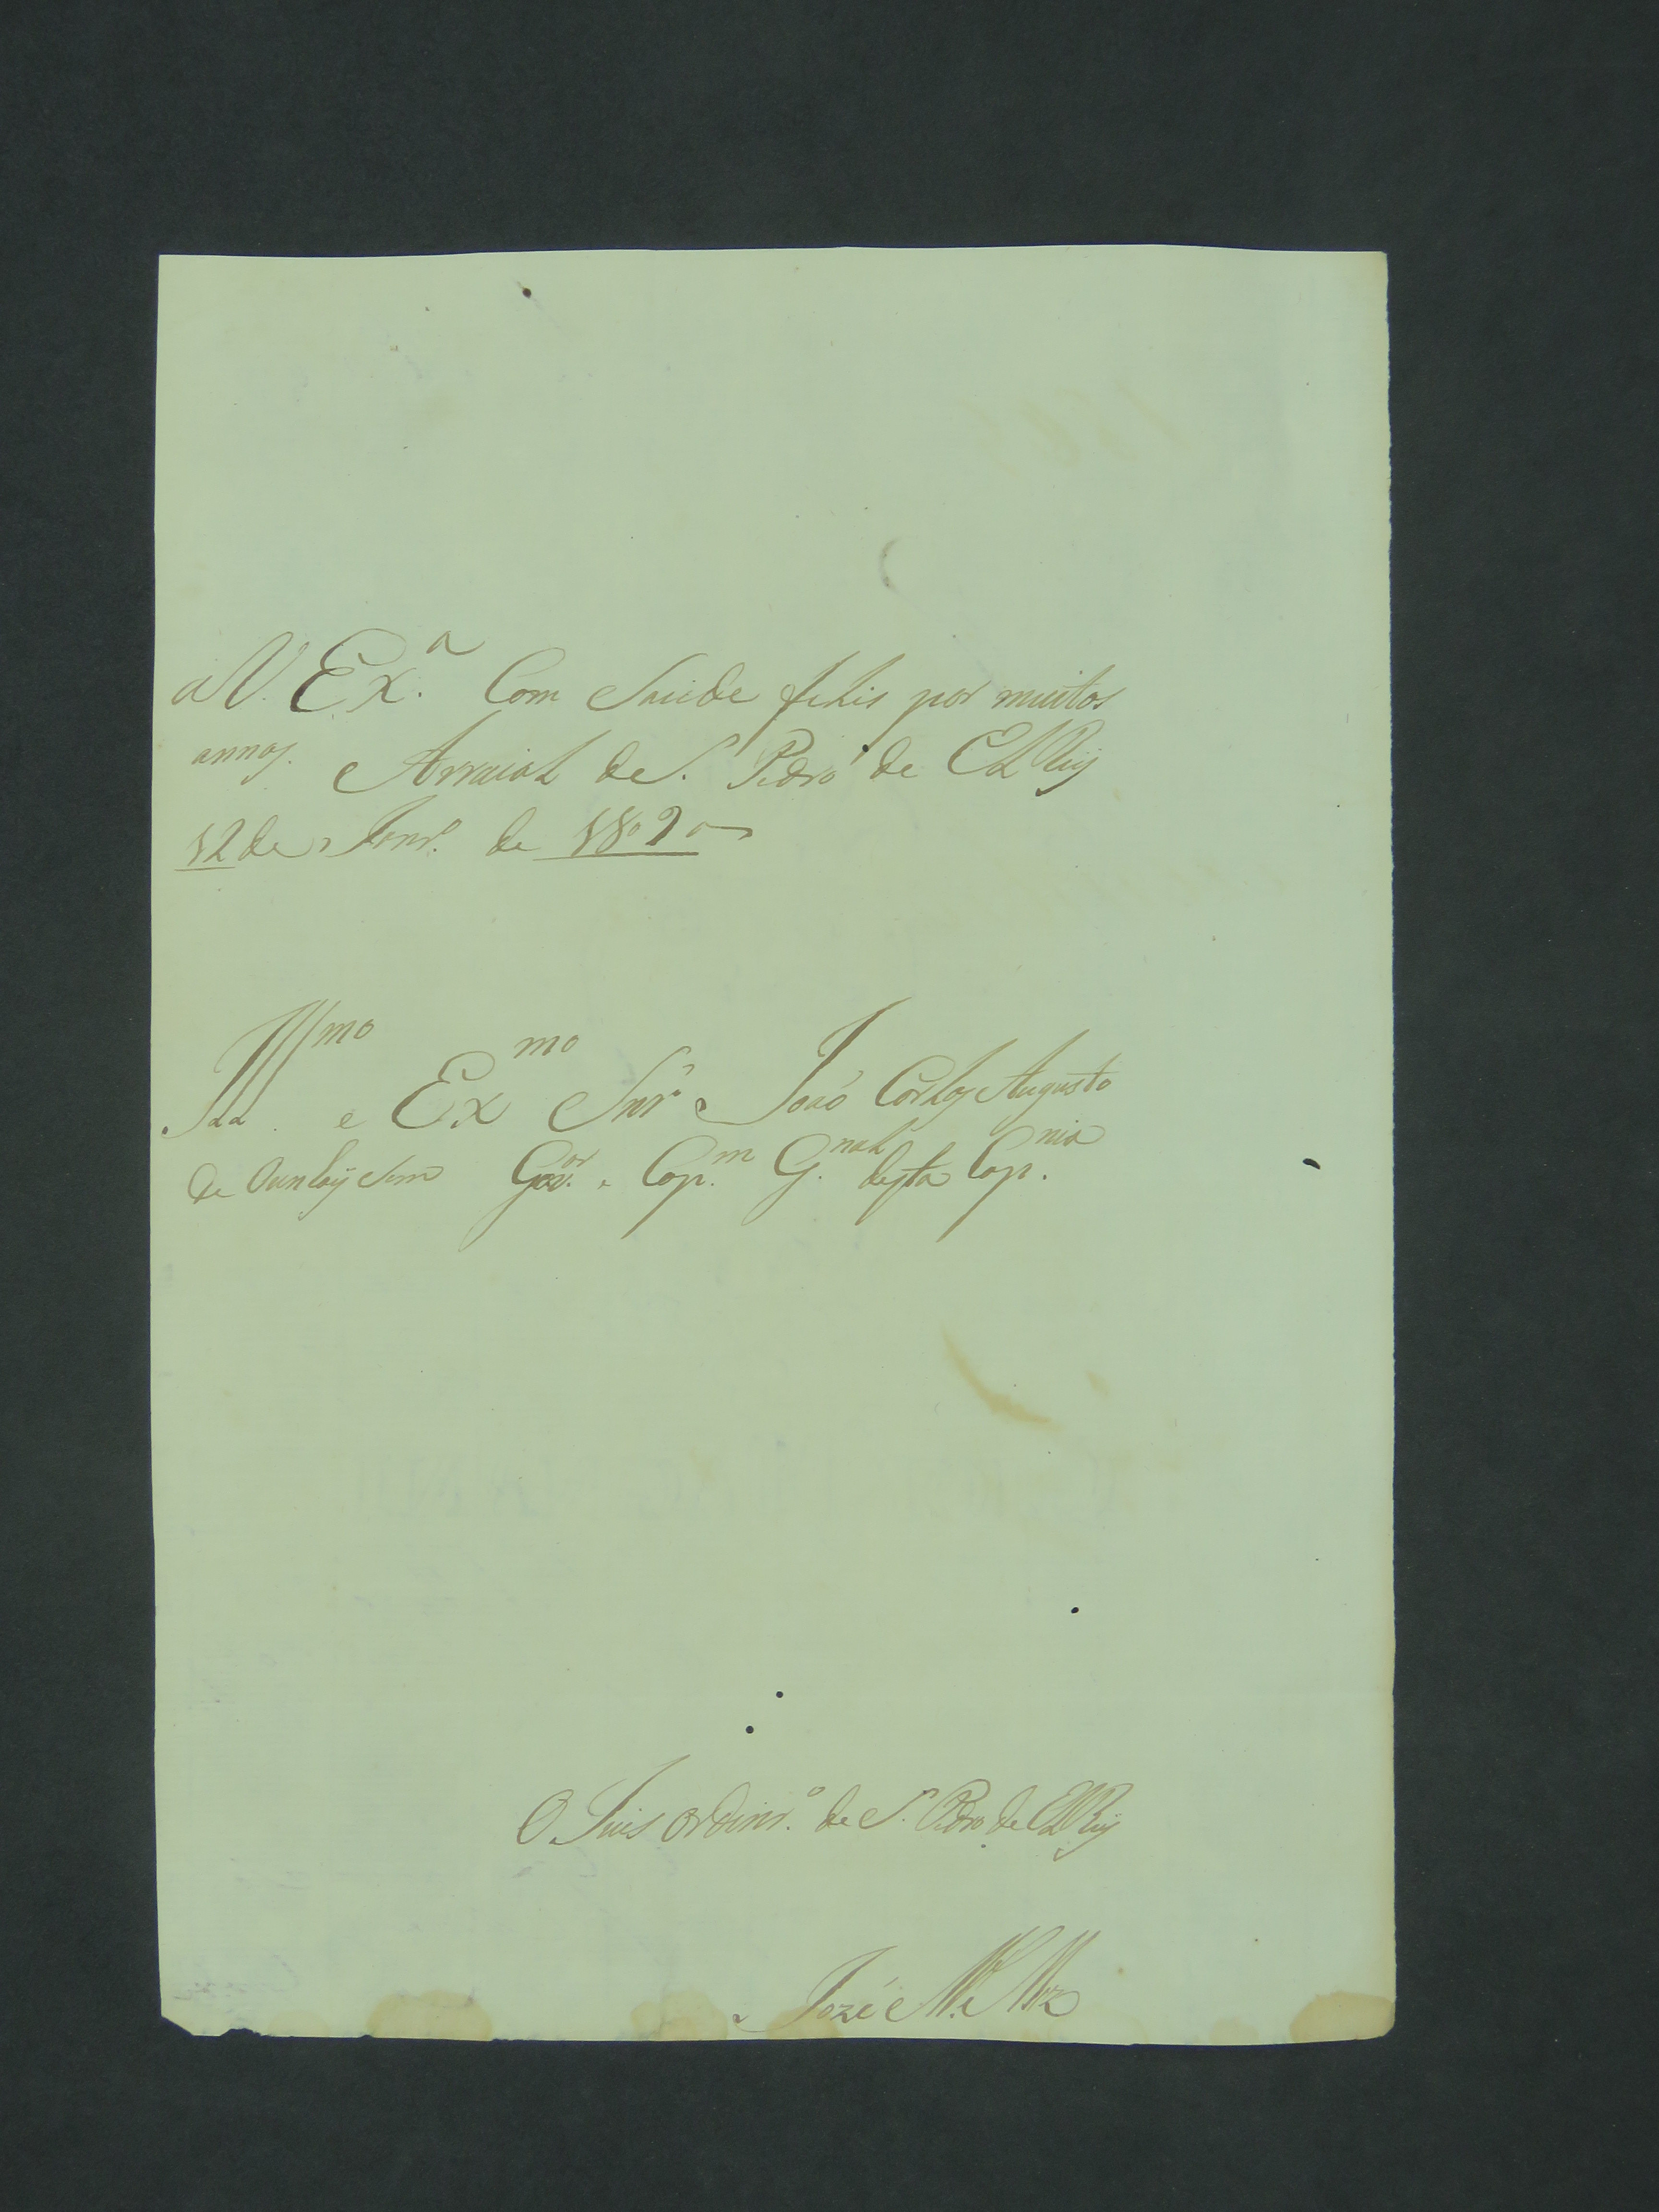 a V. Ex.ª Com Saude felis por muitos
annos. Arraial de S. Pedro de El Rey
12 de Janr.º de 1809
Ill.mo e Ex.mo Snr. João Carlos Augusto
de Gov.or e Cap.m G.nal desta Cap.nia
O Juis ordinr.º de S. Pedro de El Rey
Jozé